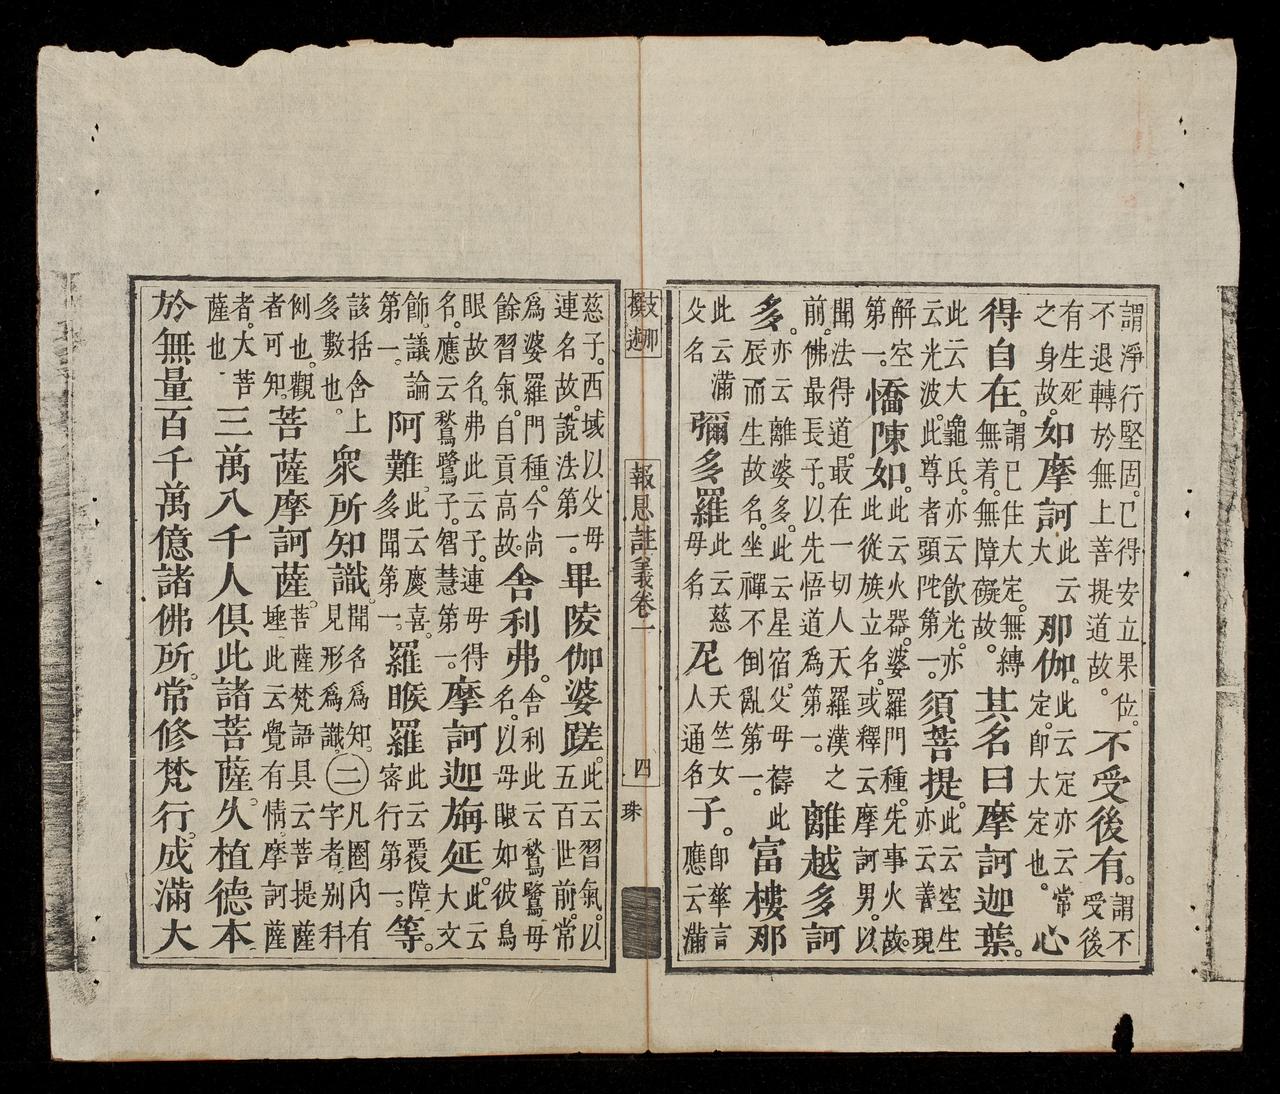 謂淨行堅固。已得安立果位。不退轉於無上菩提道故。不受後有。謂不受後
有生死之身故。如摩訶此云大那伽。此云定亦云常定。卽大定也。心
得自在。謂已住大定。無縛無着。無障礙故。其名曰摩訶迦葉。
此云大龜氏。亦云飲光。亦云光波。此尊者頭陀第一。須菩提。此云空生亦云善現
解空第一。憍陳如。此云火器。婆羅門種。先事火故。此從族立名。或釋云摩訶男。以
聞法得道。最在一切人天羅漢之前。佛最長子。以先悟道爲第一。離越多訶
多。亦云離婆多。此云星宿。父母禱此辰而生故名。坐禪不倒亂第一。富樓那
此云滿父名彌多羅此云慈母名尼天竺女人通名子。卽華言應云滿
支那撰述
報恩註義卷一
四
珠
慈子。西域以父母連名故。說法第一。畢陵伽婆蹉。此云習氣。以五百世前。常
爲婆羅門種。今尚餘習氣。自貢高故。舍利弗。舍利此云鶖鷺母名。以母眼如彼鳥
眼故名。弗此云子。連母得名。應云鶖鷺子。智慧第一。摩訶迦旃延。此云大文
飾。議論第一。阿難。此云慶喜。多聞第一。羅睺羅此云覆障。密行第一。等。
該括含上多數也。衆所知識。聞名爲知。見形爲識。㊁凡圈內有字者別科
例也。觀者可知。菩薩摩訶薩。菩薩梵語具云菩提薩埵此云覺有情。摩訶薩
者。大菩薩也三萬八千人俱此諸菩薩。久植德本
於無量百千萬億諸佛所。常修梵行。成滿大